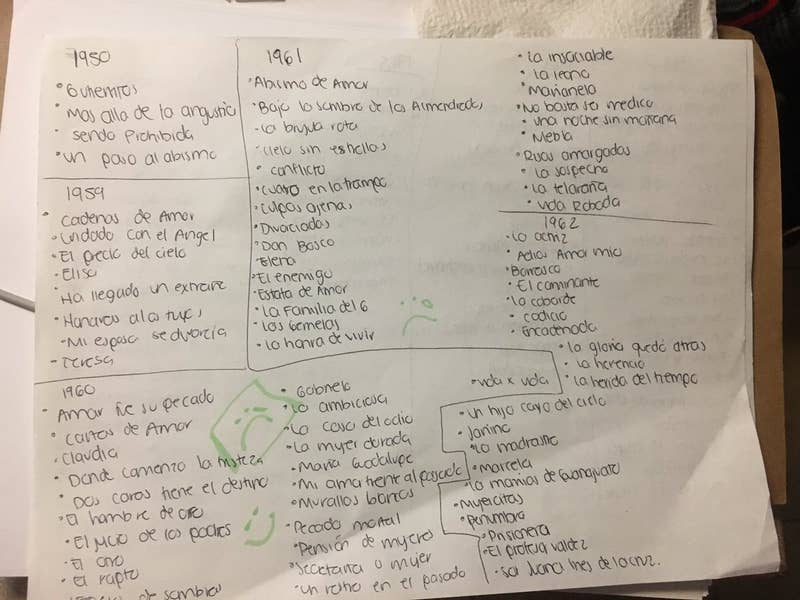 1950
• Gutierritos
• Mas alla de la angustia
• senda Prohibida
• un paso al abismo
1959
• cadenas de Amor
• cuidado con el Angel
• El precio del cielo
• Elisa
• Ha llegado un extraño
• a las
• Mi esposa se divorcia
• Teresa
1960
• Amar fue su pecado
• cartas de Amor
• Claudia
• Donde comenzo la tristeza
• Dos caras tiene el destino
• El hombre de oro
• El juicio de los padres
• El
• el rapto
de sombras
• Gabriela
• La ambiciosa
• La casa del odio
• La mujer dorada
• Maria Guadalupe
• Mi amor frente al pasado
• Murallas blancas
• Pecado mortal
• Pensión de mujeres
• Secretaria o mujer
• un rostro en el pasado
• vida x vida
1961
• Abismo de Amor
• Bajo la sombra de los Almendros
• La brujula rota
• cielo sin estrellas
• conflicto
• cuatro en la trampa
• culpas ajenas
• Divorciadas
• Don Bosco
• Elena
• El enemigo
• Estafa de Amor
• La Familia del 6
• Las Gemelas
• La honra de vivir
• La insaciable
• La leona
• Marianela
• No basta ser medico
• una noche sin mañana
• Niebla
• Risas amargadas
• la sospecha
• la telaraña
• vida Robada
1962
• La actriz
• Adios Amor mio
• Borrasca
• El caminante
• La cobarde
• codicia
• Encadenada
• la gloria quedó atras
• la herencia
• la herida del tiempo
• un hijo cayo del cielo
• Janina
• La madrastra
• Marcela
• La momias de Guanajuato
• Mujercitas
• Penumbra
• Prisionera
• El profesor valdez
• sor Juana Ines de la cruz.